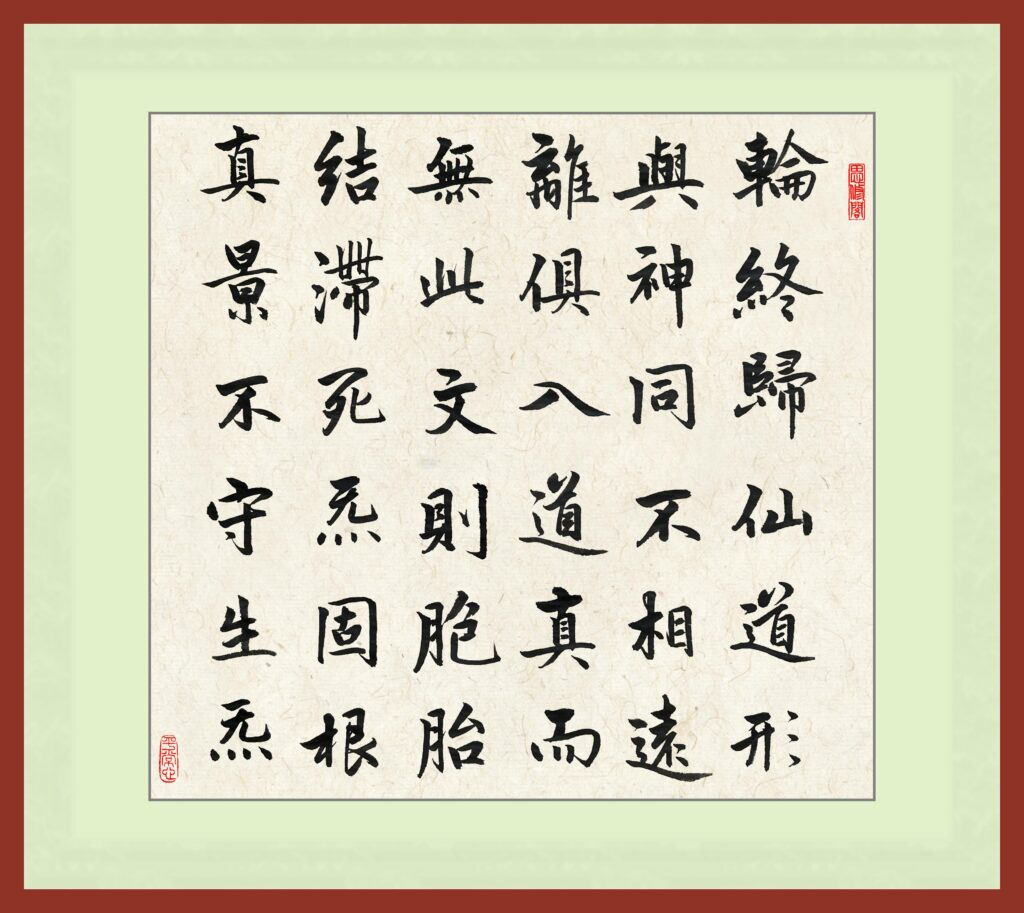 輪終歸仙道形
與神同不相遠
離俱入道真而
無此文則胞胎
結滯死炁固根
真景不守生炁